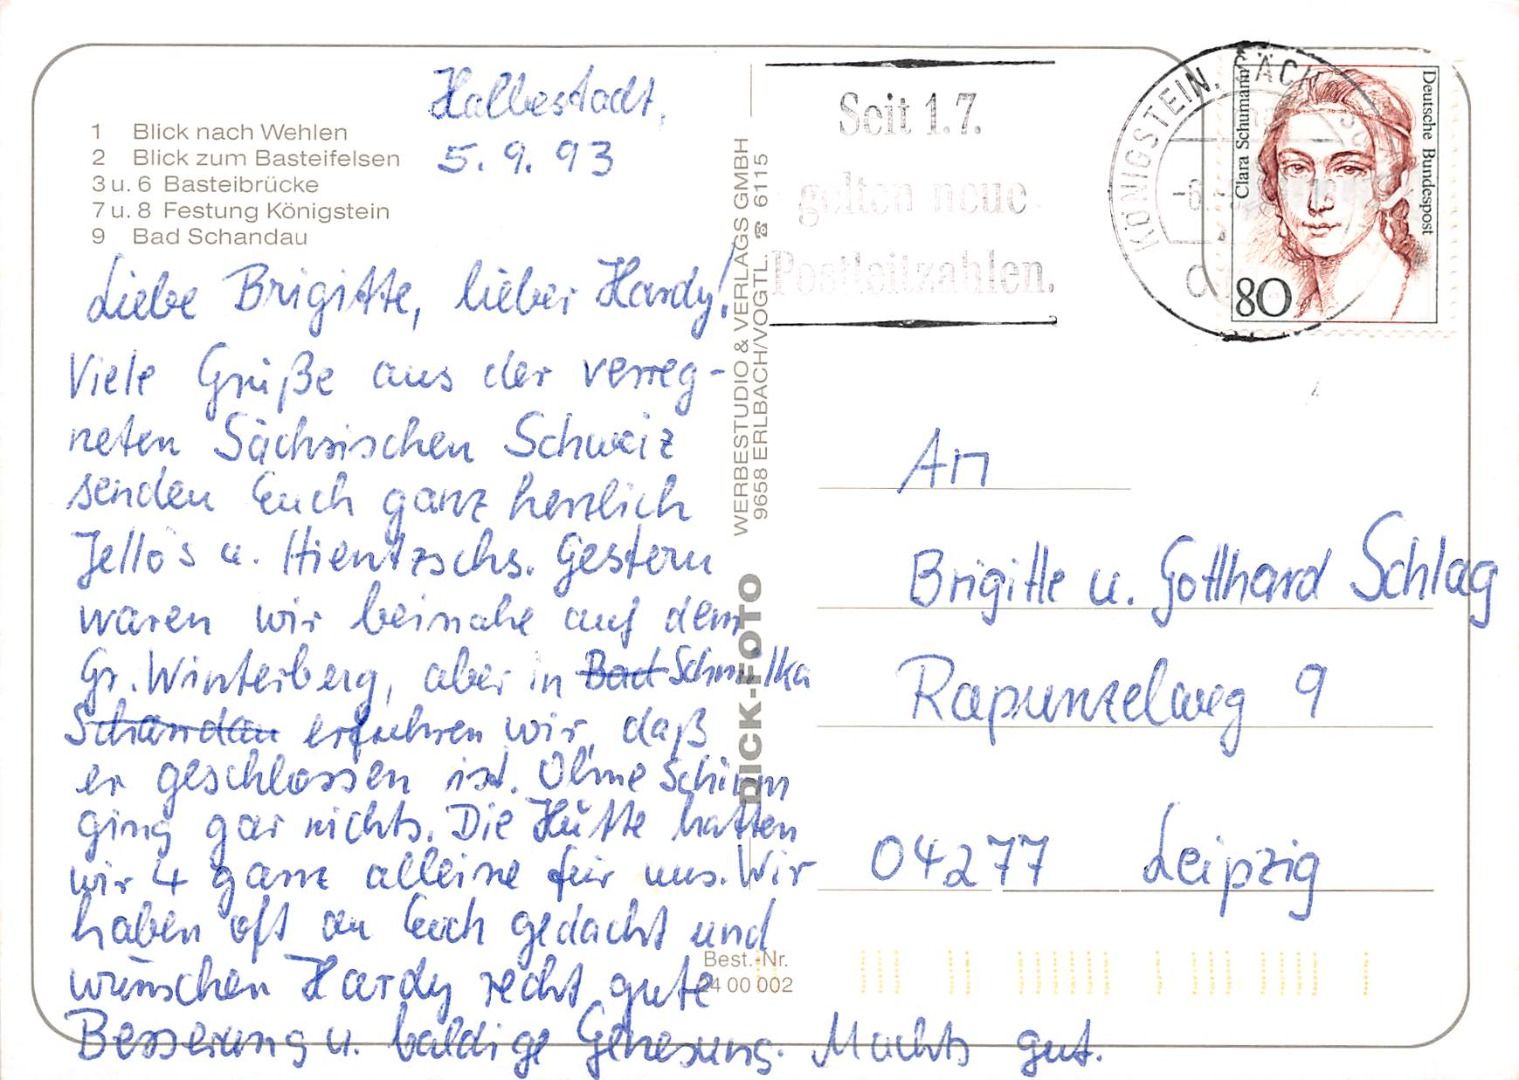 1 Blick nach Wehlen
2 Blick zum Basteifelsen
3 u. 6 Basteibrücke
7 u. 8 Festung Königstein
9 Bad Schandau
Halbestadt,
5. 9. 93
Liebe Brigitte, lieber Hardy!
Viele Grüße aus der verreg-
neten Sächsischen Schweiz
senden Euch ganz herzlich
Jello's u. Hientzschs. Gestern
waren wir beinahe auf dem
Gr. Winterberg, aber in Bad Schmilka
Schandau erfuhren wir, daß
er geschlossen ist. Ohne Schirm
ging gar nichts. Die Hütte hatten
wir 4 ganz alleine für uns. Wir
haben oft an Euch gedacht und
wünschen Hardy recht gute
Besserung u. baldige Genesung. Machts gut.
WERBESTUDIO & VERLAGS GMBH
9658 ERLBACH/VOGTL. ☎ 6115
DICK-FOTO
Best.-Nr.
24 00 002
Seit 1.7.
gelten neue
Postleitzahlen.
KÖNIGSTEIN, SÄCHS
-6.
Clara Schumann
Deutsche Bundespost
80
An
Brigitte u. Gotthard Schlag
Rapunzelweg 9
04277 Leipzig